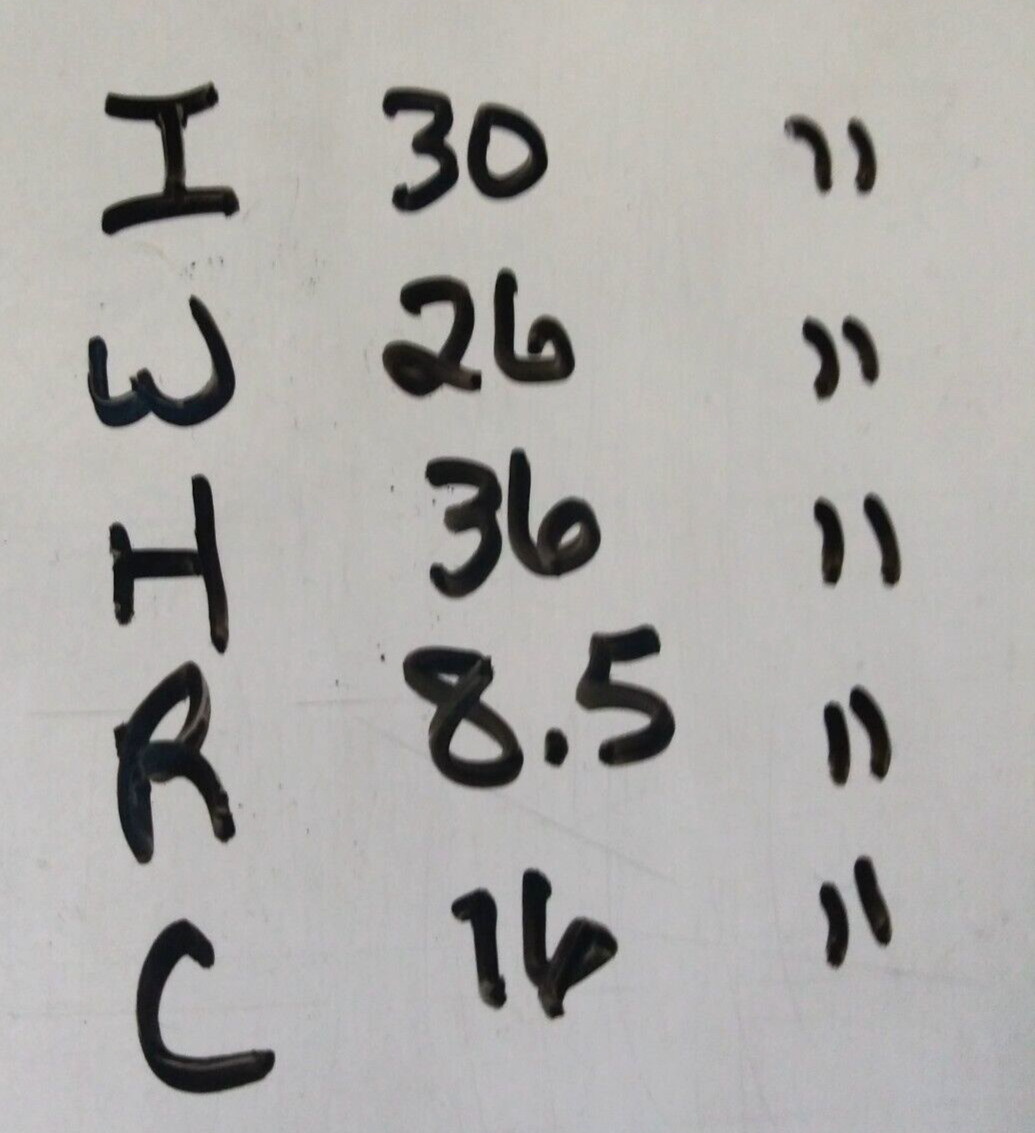 I 30 "
W 26 "
H 36 "
R 8.5 "
C 16 "